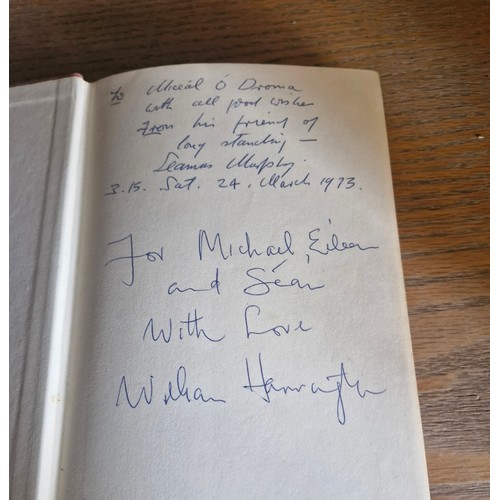 to Mícéal Ó Droma
with all good wishes
From his friend of
long standing —
Seamus Murphy.
3.15. Sat. 24. March 1973.
For Michael, Eileen
and Seán
With Love
William Harrington